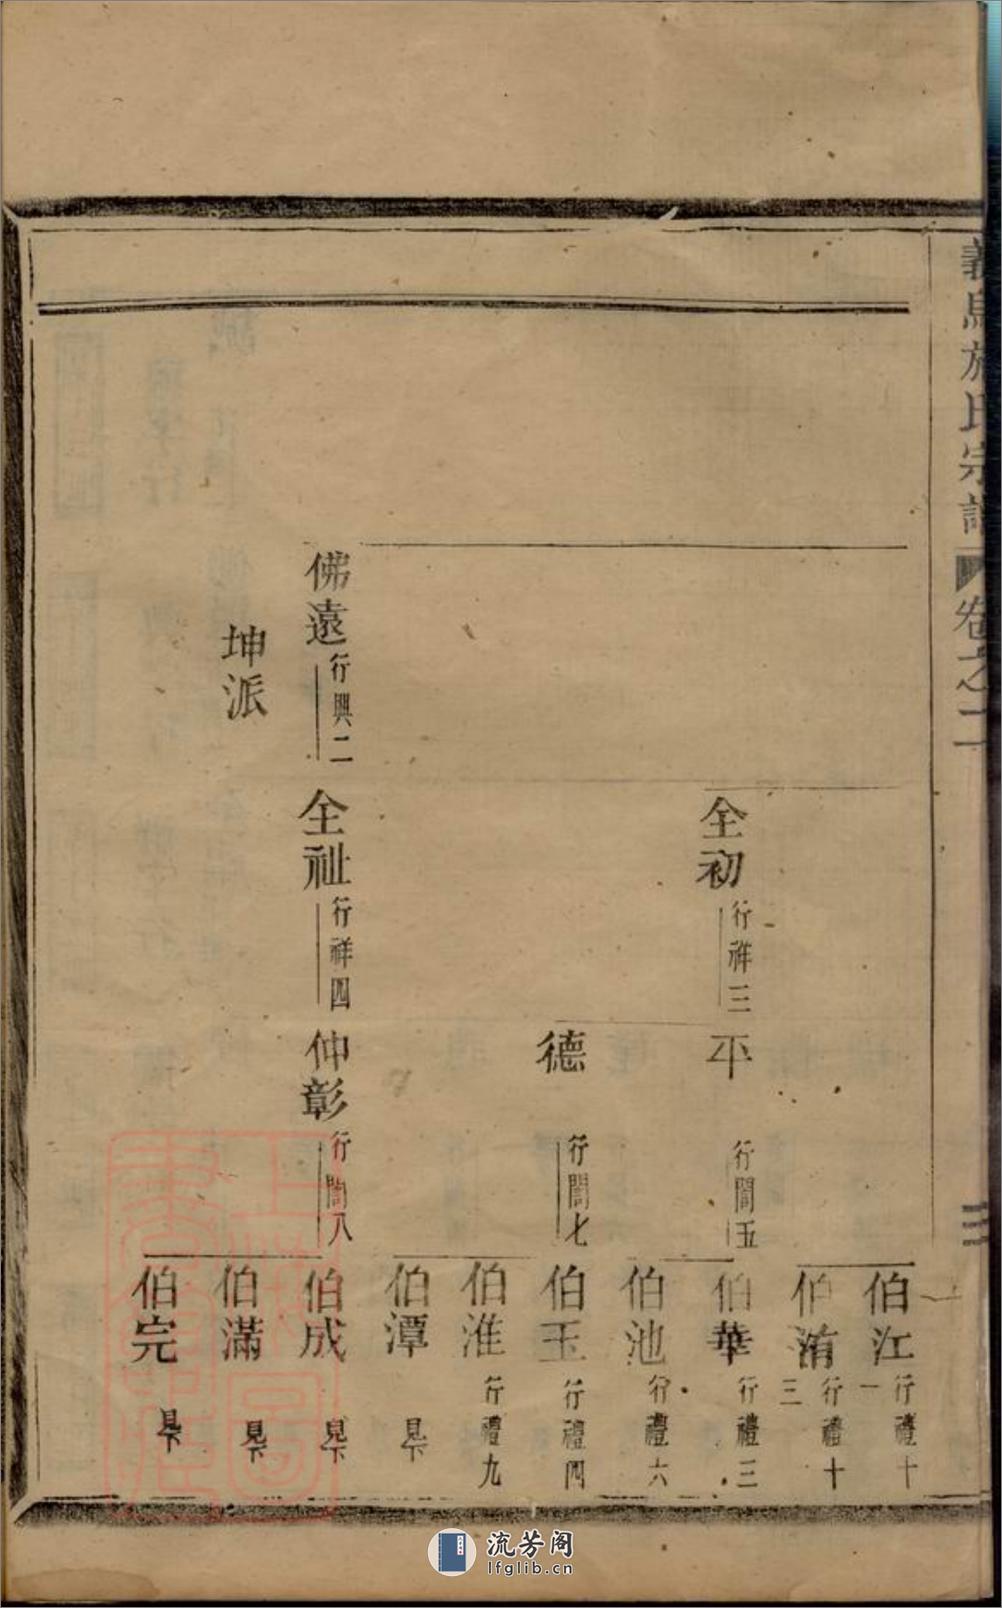 義烏施氏宗譜 卷之二
三
伯江 行禮十一
伯洧 行禮十三
全初 行祥三
平 行誾五
伯華 行禮三
伯池 行禮六
德 行誾七
伯玉 行禮四
伯淮 行禮九
伯潭 見下
佛遠 行興二
全祉 行祥四
仲彰 行誾八
伯成 見下
坤派
伯滿 見下
伯完 見下
流芳阁
lfglib.cn